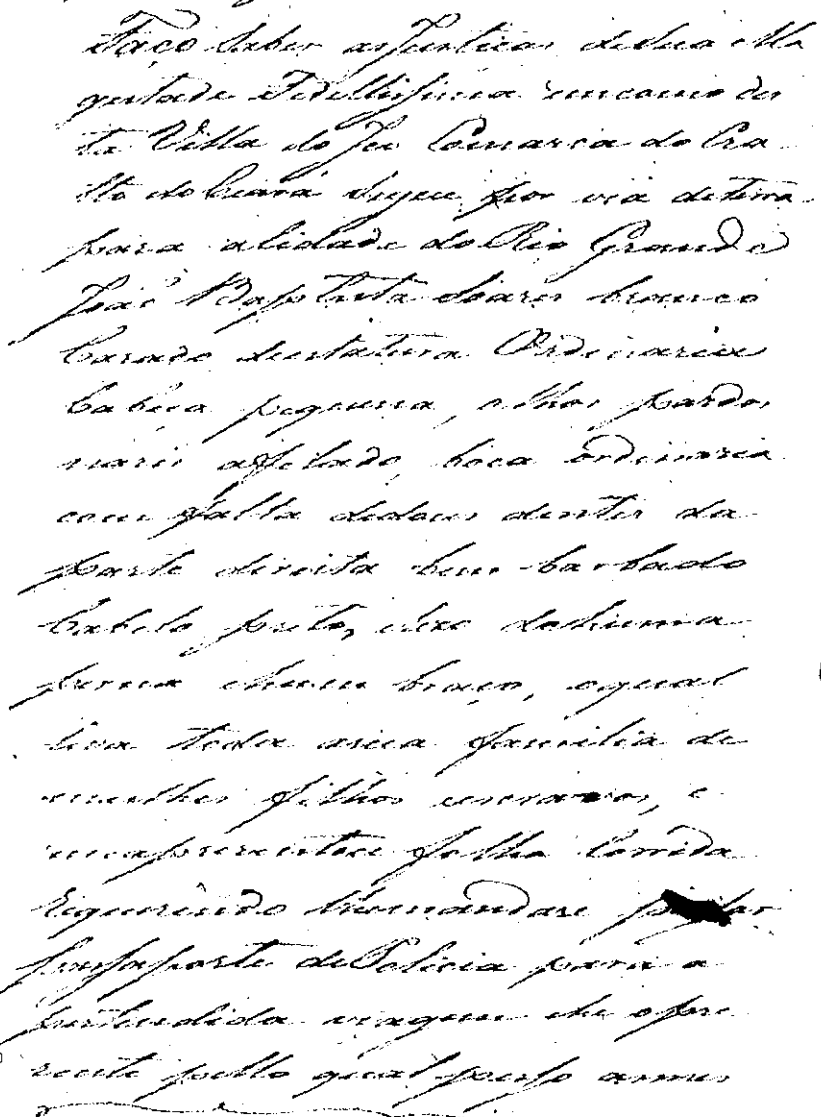 Faço saber as Justicas de Sua Ma
gestade Fidellissima que como des
ta Villa do Jco Comarca do Cra
tto do Ceará segue por via de terra
para a Cidade do Rio Grande
João Baptista Soares branco
Cazado de estatura Ordinaria
Cabeça piquena, olhos pardos
naris affilado, boca ordinaria
com falta de dous dentes da
parte direita bem barbado
Cabelo preto, de huma
perna e hum braço, o qual
leva toda a sua familia de
mulher filhos e escravos, e
me aprezentou folha Corrida
Requerindo lhe mandase pasar
Passaporte de Policia para a
pertendida viagem e he o pre
zente pello qual peço a mes